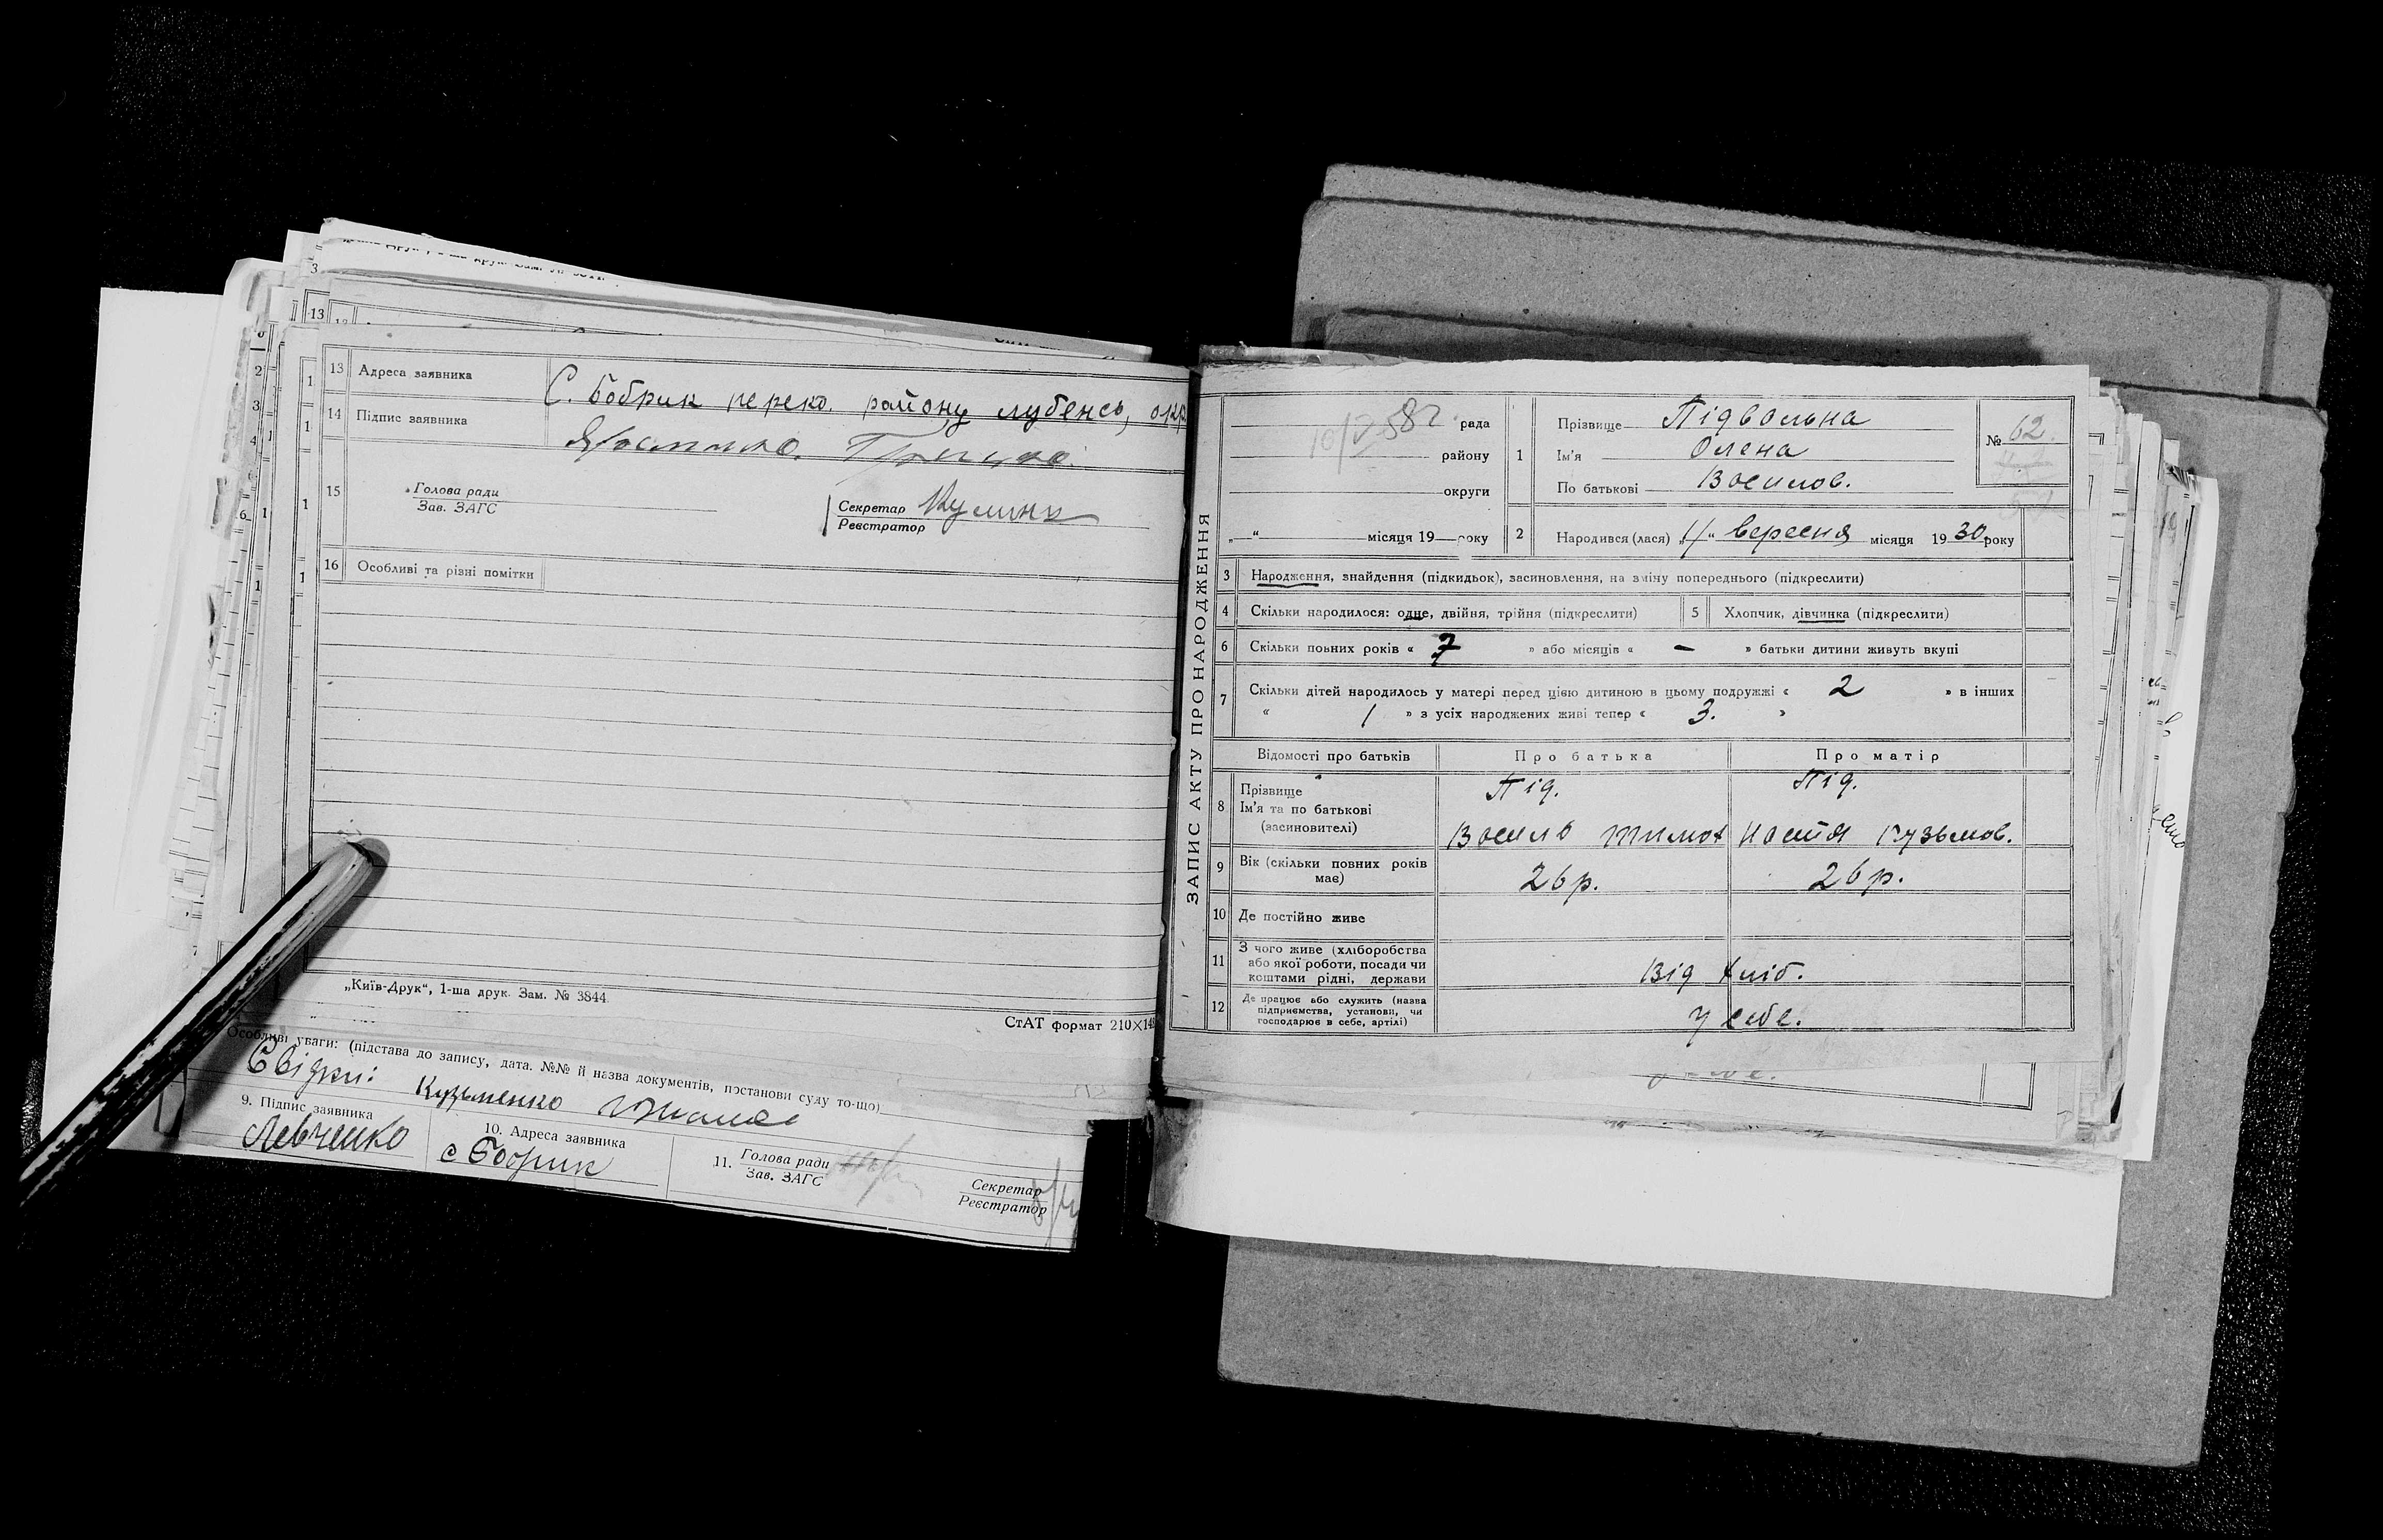 13 Адреса заявника С. Бобрик переко. району лубенсь, окр.
14 Підпис заявника
15 Голова ради
Зав. ЗАГС
Секретар
Реєстратор
16 Особливі та різні помітки
„Київ-Друк“, 1-ша друк. Зам. № 3844
СтАТ формат 210×148
Особливі уваги: (підстава до запису, дата. №№ й назва документів, постанови суду то-що)
Свідки: Кузьменко
9. Підпис заявника
Левченко
10. Адреса заявника
с Бобрик
11. Голова ради
Зав. ЗАГС
Секретар
Реєстратор
ЗАПИС АКТУ ПРО НАРОДЖЕННЯ
рада
району
округи
„ “ місяця 19 року
1 Прізвище Підвальна
Ім'я Олена
По батькові Василов.
№ 62
2 Народився (лася) „11“ вересня місяця 1930 року
3 Народження, знайдення (підкидьок), засиновлення, на зміну попереднього (підкреслити)
4 Скільки народилося: одне, двійня, трійня (підкреслити)
5 Хлопчик, дівчинка (підкреслити)
6 Скільки повних років « 7 » або місяців « – » батьки дитини живуть вкупі
7 Скільки дітей народилось у матері перед цією дитиною в цьому подружжі « 2 » в інших
« 1 » з усіх народжених живі тепер « 3. »
Відомості про батьків Про батька Про матір
8 Прізвище Під. Під.
Ім'я та по батькові
(засиновителі) Василь Тимох Настя Кузьмов.
9 Вік (скільки повних років має) 26 р. 26 р.
10 Де постійно живе
11 З чого живе (хліборобства
або якої роботи, посади чи
коштами рідні, держави Від хліб.
12 Де працює або служить (назва
підприємства, установи, чи
господарює в себе, артілі) У себе.